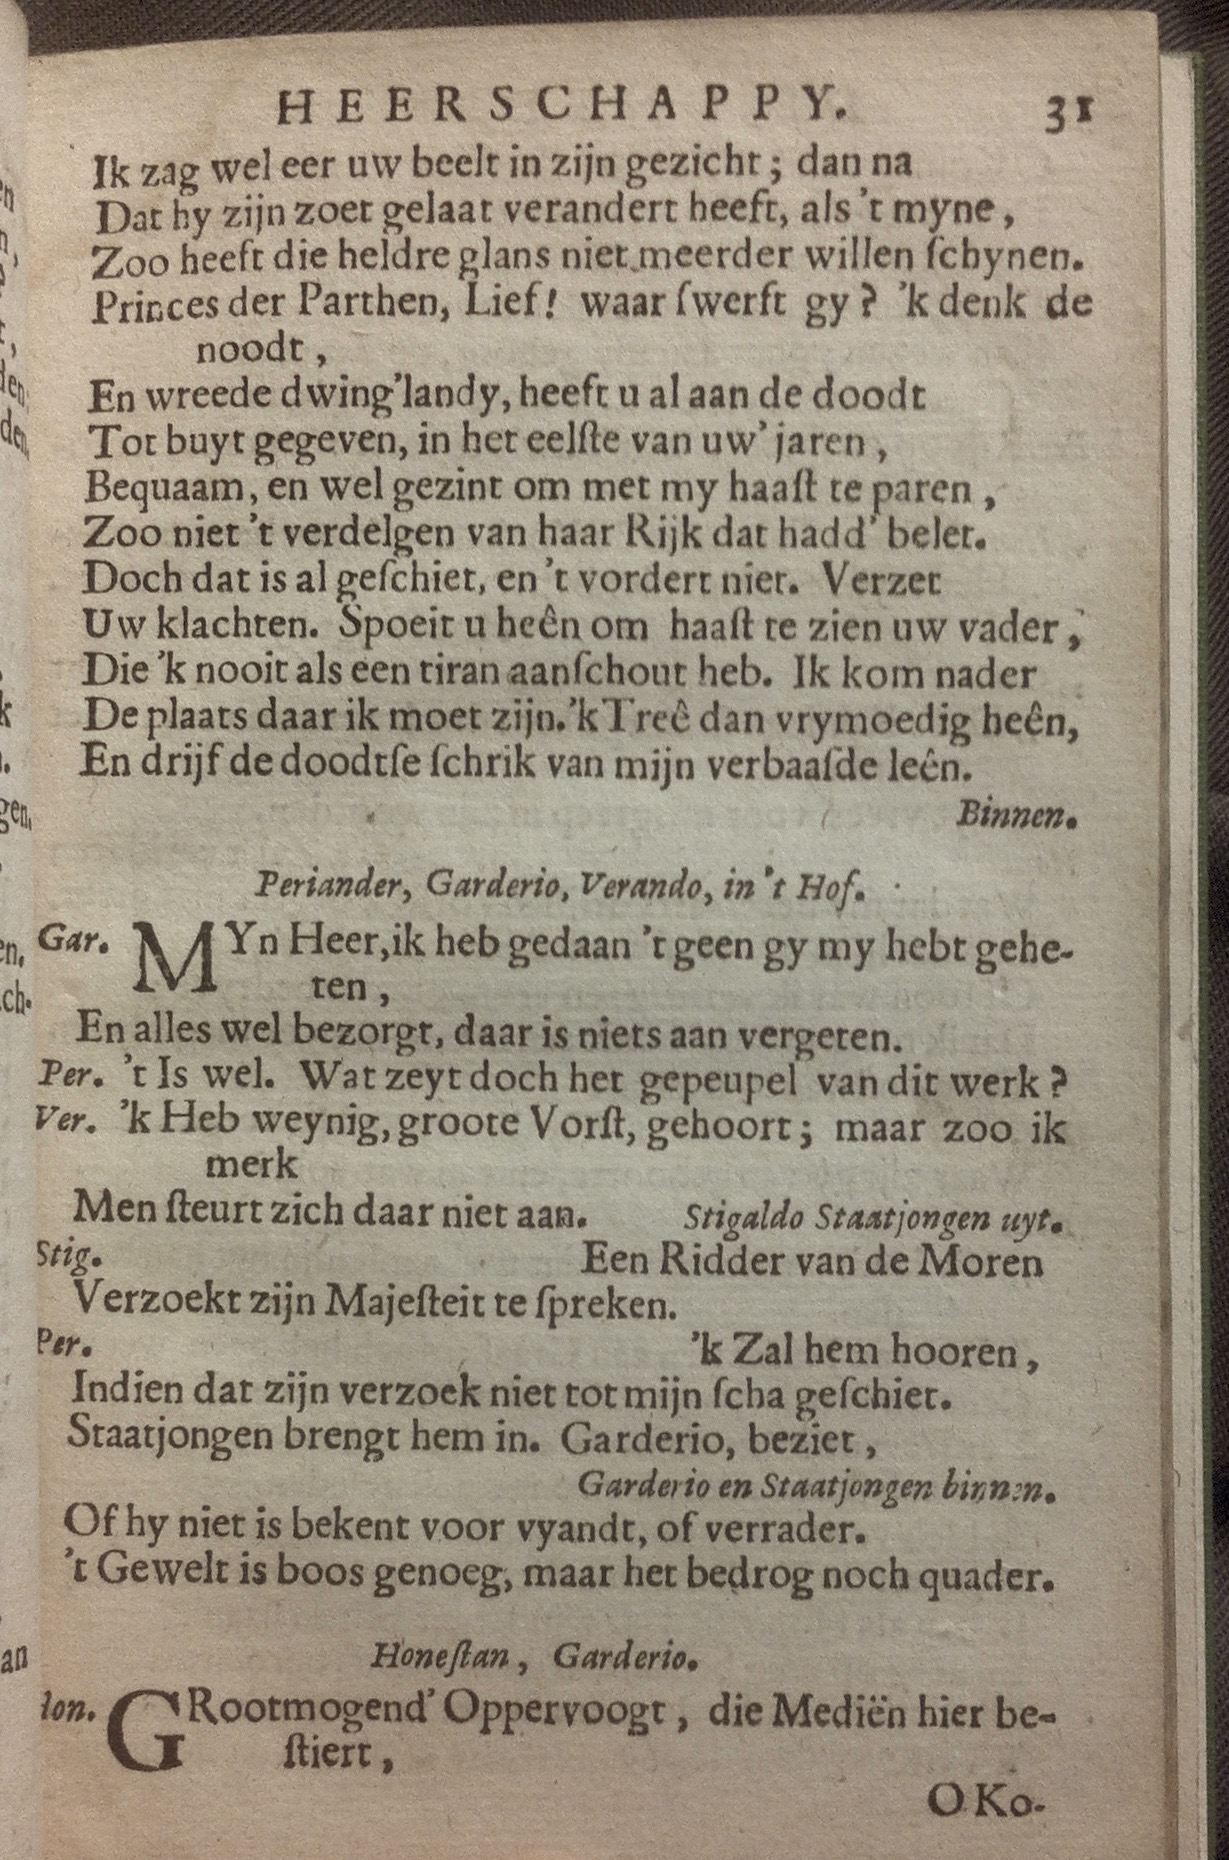 HEERSCHAPPY. 31
Ik zag wel eer uw beelt in zijn gezicht; dan na
Dat hy zijn zoet gelaat verandert heeft, als 't myne,
Zoo heeft die heldre glans niet meerder willen ſchynen.
Princes der Parthen, Lief! waar ſwerft gy? 'k denk de
noodt,
En wreede dwing'landy, heeft u al aan de doodt
Tot buyt gegeven, in het eelſte van uw' jaren,
Bequaam, en wel gezint om met my haaſt te paren,
Zoo niet 't verdelgen van haar Rijk dat hadd' belet.
Doch dat is al geſchiet, en 't vordert niet. Verzet
Uw klachten. Spoeit u heên om haaſt te zien uw vader,
Die 'k nooit als een tiran aanſchout heb. Ik kom nader
De plaats daar ik moet zijn. 'k Treê dan vrymoedig heên,
En drijf de doodtſe ſchrik van mijn verbaaſde leên.
Binnen.
Periander, Garderio, Verando, in 't Hof.
Gar. MYn Heer, ik heb gedaan 't geen gy my hebt gehe-
ten,
En alles wel bezorgt, daar is niets aan vergeten.
Per. 't Is wel. Wat zeyt doch het gepeupel van dit werk?
Ver. 'k Heb weynig, groote Vorſt, gehoort; maar zoo ik
merk
Men ſteurt zich daar niet aan. Stigaldo Staatjongen uyt.
Stig. Een Ridder van de Moren
Verzoekt zijn Majeſteit te ſpreken.
Per. 'k Zal hem hooren,
Indien dat zijn verzoek niet tot mijn ſcha geſchiet.
Staatjongen brengt hem in. Garderio, beziet,
Garderio en Staatjongen binnen.
Of hy niet is bekent voor vyandt, of verrader.
't Gewelt is boos genoeg, maar het bedrog noch quader.
Honeſtan, Garderio.
Hon. GRootmogend' Oppervoogt, die Mediën hier be-
ſtiert,
O Ko-